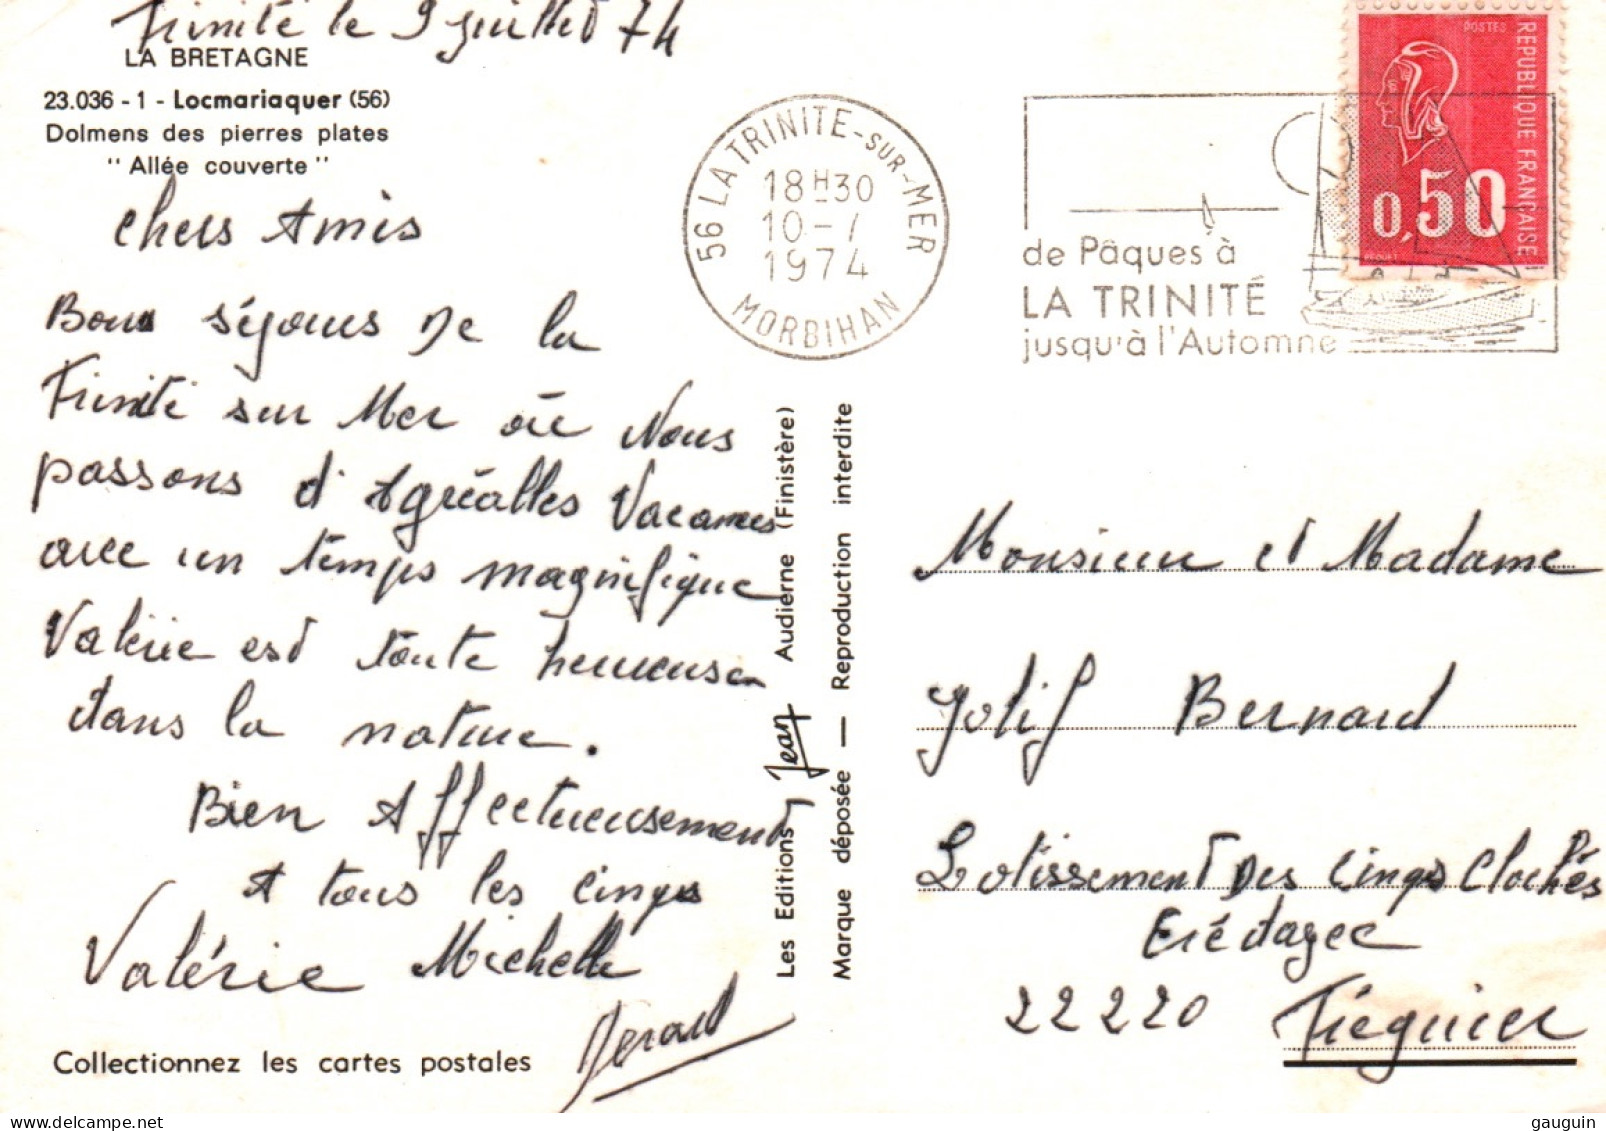 Trinité le 9 Juillet 74
LA BRETAGNE
23.036 - 1 - Locmariaquer (56)
Dolmens des pierres plates
"Allée couverte"
chers Amis
Bons séjours De la
Trinité sur Mer où Nous
passons d'Agréables Vacances
avec un temps magnifique
Valérie est toute heureuse
dans la nature.
Bien Affectueusement
A tous les cinqs
Valérie Michelle
Gerard
Collectionnez les cartes postales
Les Editions Jean Audierne (Finistère)
Marque déposée — Reproduction interdite
56 LA TRINITE-SUR-MER
18H30
10-7
1974
MORBIHAN
de Pâques à
LA TRINITÉ
jusqu'à l'Automne
POSTES
REPUBLIQUE FRANÇAISE
0,50
Monsieur et Madame
Jolif Bernard
Lotissement Des Cinqs Clochés
22220 Tréguier
gauguin - https://www.delcampe.net